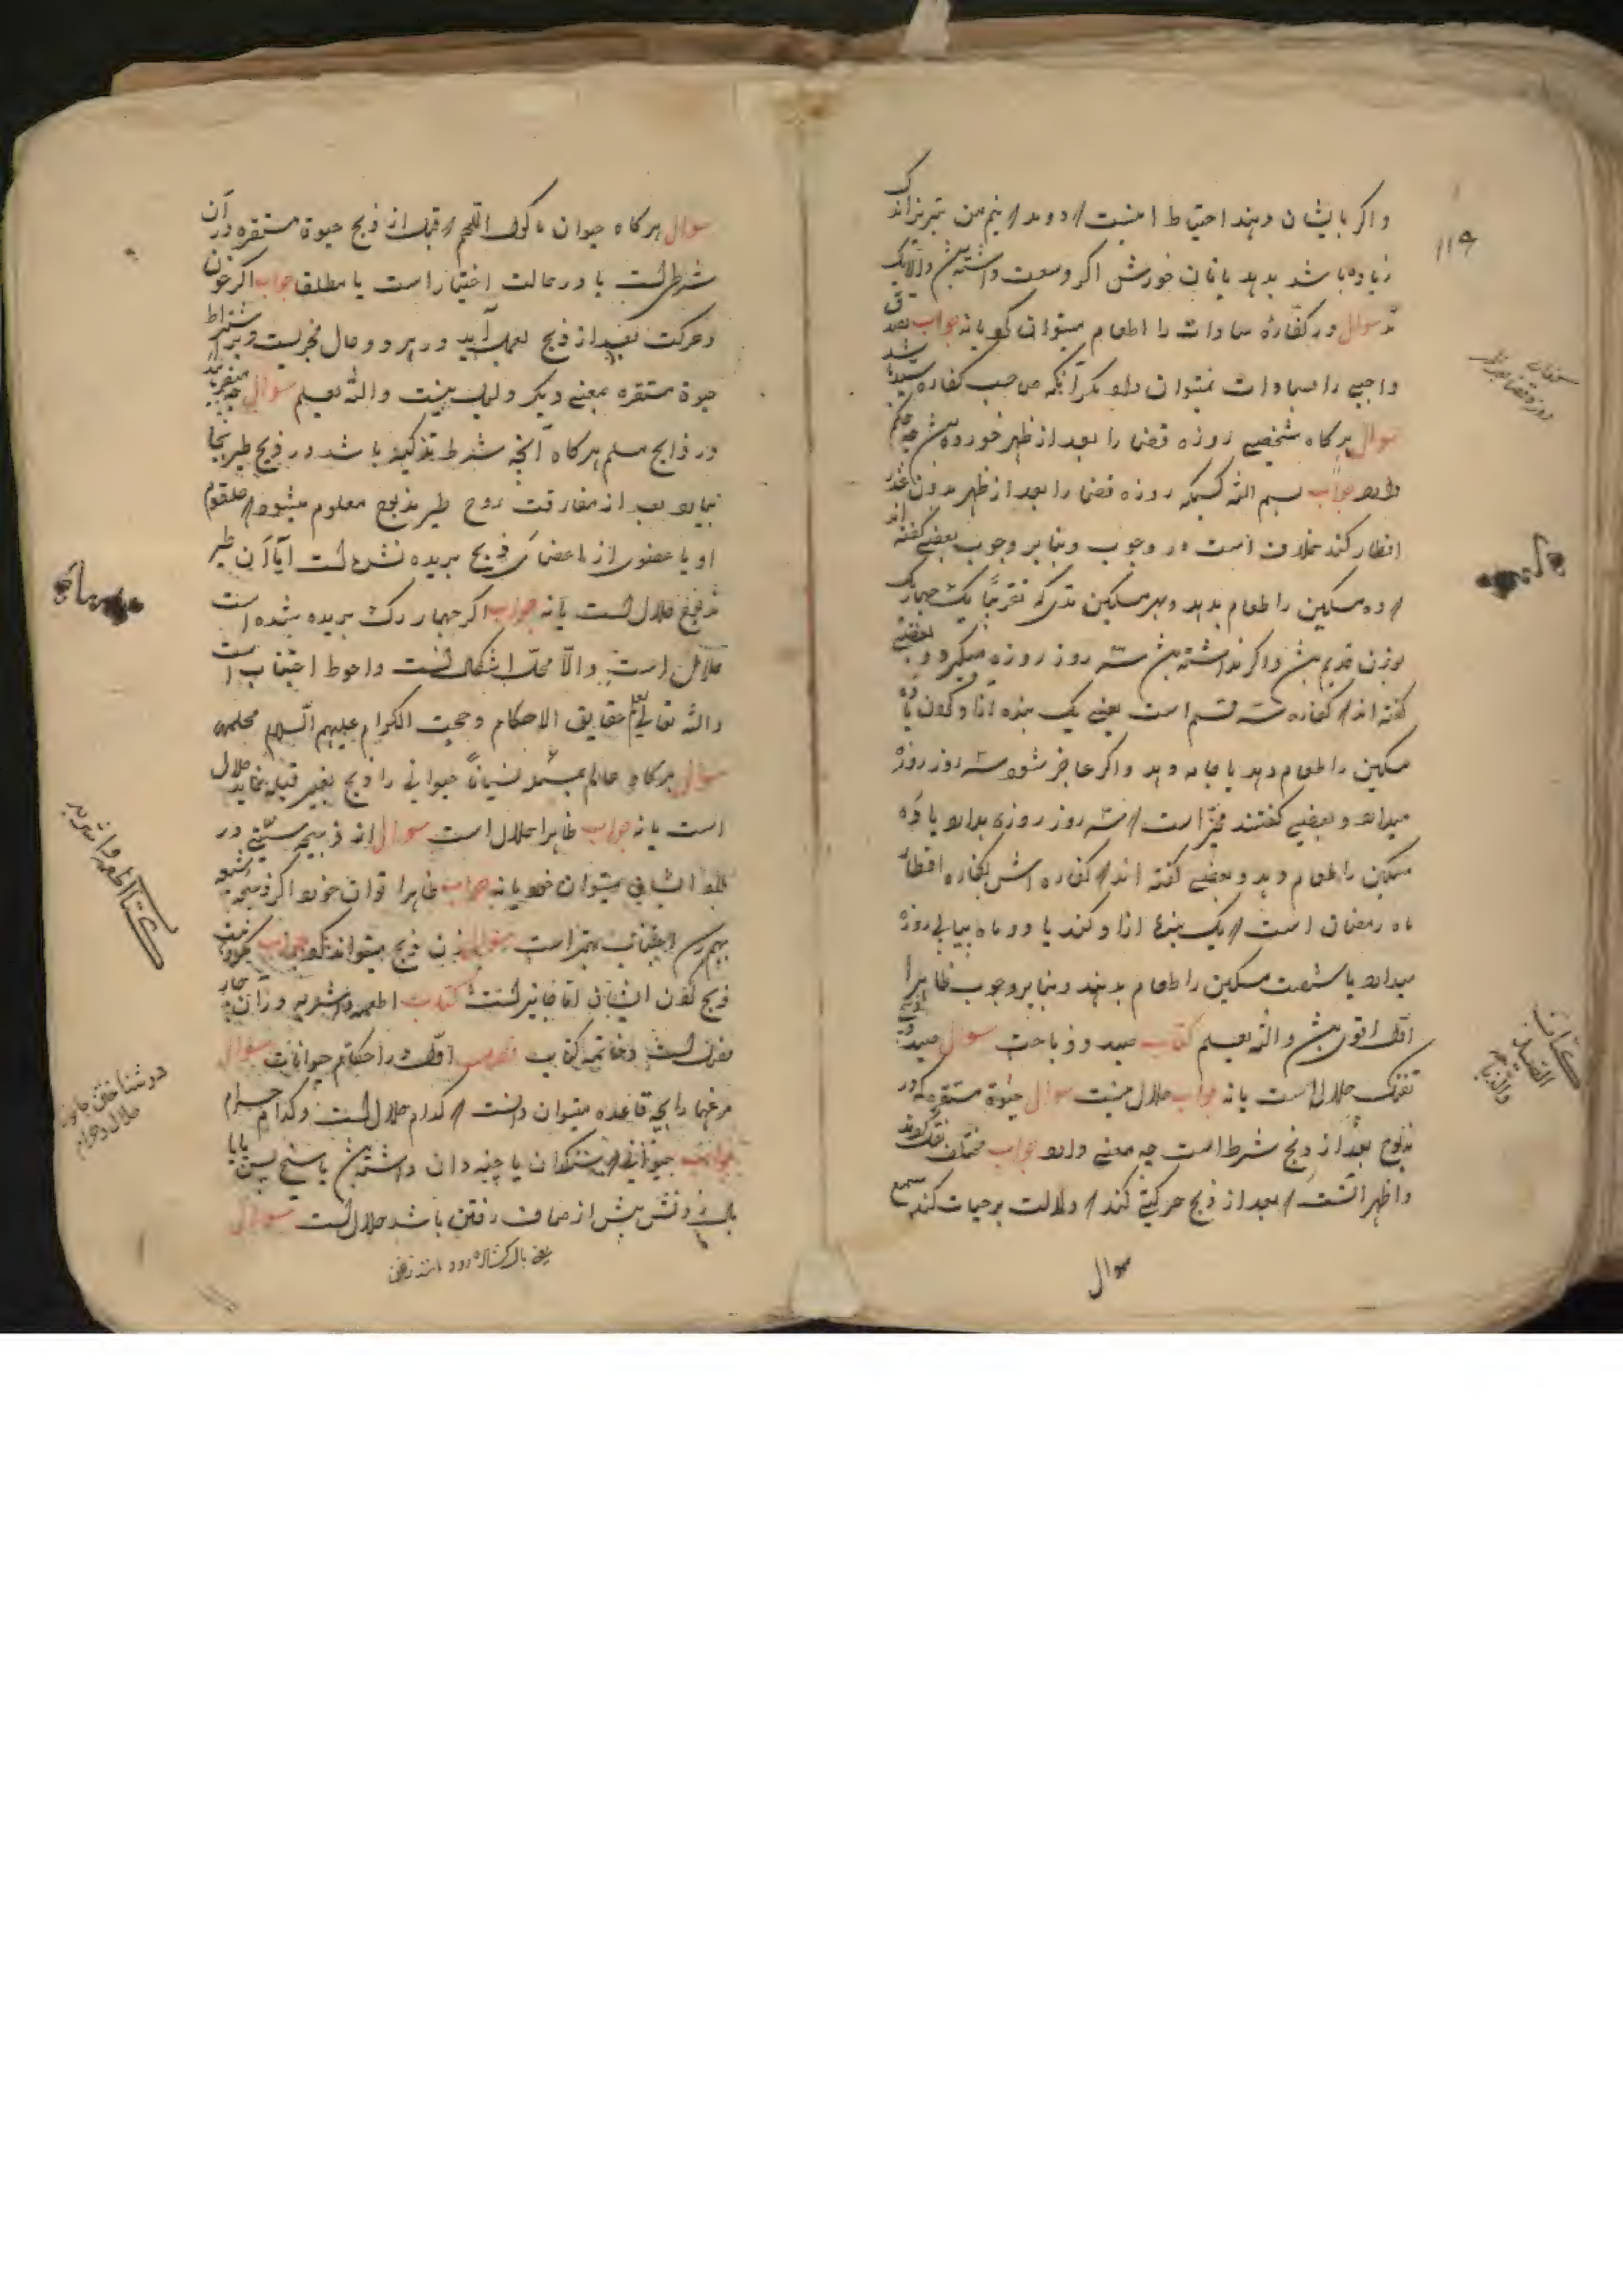 ۱۱۹
و اکر بایشان دهند احتیاط
زیاده باشد بدهد یا نان خورش اکر وسعت داشته
سوال در کفاره سادات را اطعام میتوان کرد یا نه جواب تصدق
واجبی را بسادات نمیتوان داد مکر آنکه صاحب کفاره سید باشد
سوال هرکاه شخصی روزه قضا را بعد از ظهر خورده چه حکم
دارد جواب بسم الله کسیکه روزه قضا را بعد از ظهر بدون عذر
افطار کند خلاف است در وجوب و بنا بر وجوب بعضی کفته اند
ده مسکین را طعام بدهد و بهر مسکین مدی که تقریبا یک چهارک
بوزن قدیم و اکر نداشته سه روز روزه میکیرد و بعضی
کفته اند کفاره قسم است یعنی یک بنده آزاد کردن یا ده
مسکین را طعام دهد یا جامه دهد و اکر عاجز شود سه روز روزه
میدارد و بعضی کفتند مخیر است سه روز روزه بدارد یا ده
مسکین را طعام دهد و بعضی کفته اند کفاره اش کفاره افطار
ماه رمضان است یک بنده آزاد کند یا دو ماه پیاپی روزه
میدارد یا شصت مسکین را طعام بدهند و بنا بر وجوب ظاهرا
اول اقوی والله یعلم کتاب صید و ذباحت سوال صید
تفنک حلال است یا نه جواب حلال نیست سوال حیوة مستقره که در
مذبوح بعد از ذبح شرط است چه معنی دارد جواب مختلف نقل کردند
و اظهر انست بعد از ذبح حرکتی کند دلالت بر حیات کند
سوال
کتاب
الصید
والذبایح
سوال هرکاه حیوان ماکول اللحم قبل از ذبح حیوة مستقره در آن
شرط است یا در حالت اختیار است یا مطلقا جواب اکر خون
و حرکت بعد از ذبح بعمل آید در هر دو حال مجزیست و بر اشتراط
حیوة مستقره بمعنی دیکر دلیل نیست والله یعلم سوال چه میفرمایند
در ذابح مسلم هرکاه آنچه شرط تذکیه باشد در ذبح طیر بجا
بیاورد بعد از مفارقت روح طیر مذبوح معلوم میشود حلقوم
او یا عضوی از اعضای ذبح بریده نشده است آیا آن طیر
مذبوح حلال است یا نه جواب اکر چهار رک بریده شده است
حلال است والا محل اشکال است و احوط اجتناب است
والله تعالی یعلم حقایق الاحکام و حججه الکرام علیهم السلام
سوال هرکاه عالم بمسئله نسیانا حیوانی را ذبح بغیر قبله نماید حلال
است یا نه جواب ظاهرا حلال است سوال از ذبیحه سنی در
بلاد ایشان میتوان خورد یا نه جواب ظاهرا توان خورد اکر ذبیحه شیعه
بهم رسد اجتناب بهتر است سوال زن ذبح میتواند کرد جواب
ذبح کردن ایشان جایز است کتاب اطعمه و اشربه و در آن چهار
مقصد است و خاتمه کتاب مقصد اول در احکام حیوانات سوال
مرغها را بچه قاعده میتوان دانست کدام حلال است و کدام حرام
جواب حیوانی سنکدان یا چینه دان داشته یا سیخ پس پا یا
بال زدنش بیش از صاف رفتن باشد حلال است سوال
کتاب اطعمه و اشربه
در شناختن جانور
حلال و حرام